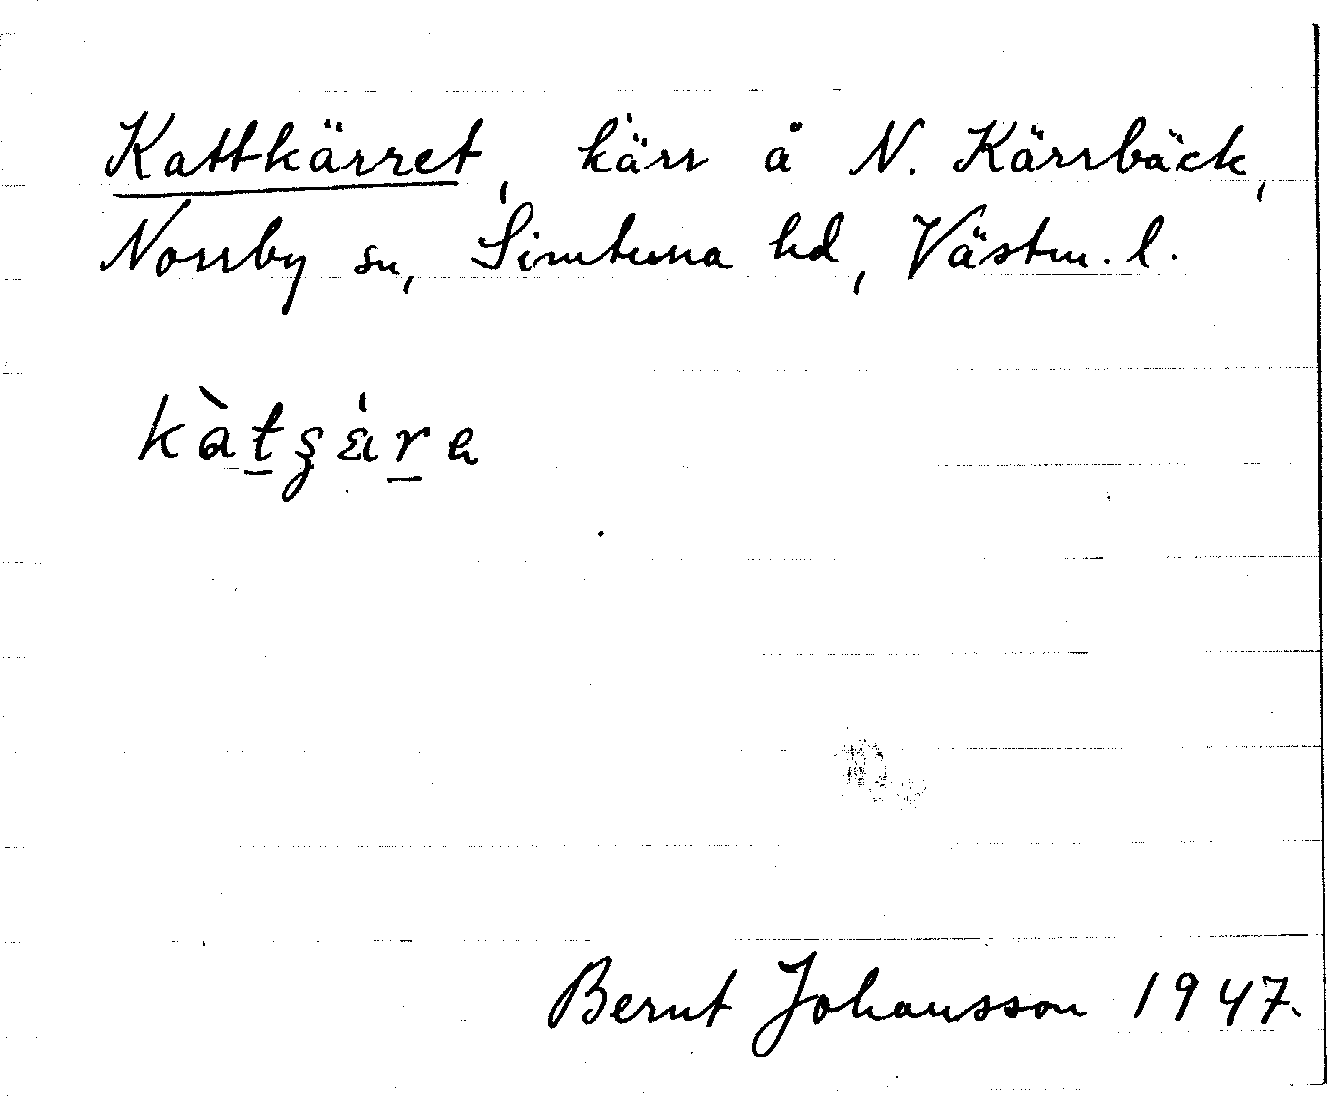 Kattkärret, kärr å N. Kärrbäck,
Norrby sn, Simtuna hd, Västm. l.
kàt̲ʂä́r̲a
Bernt Johansson 1947.